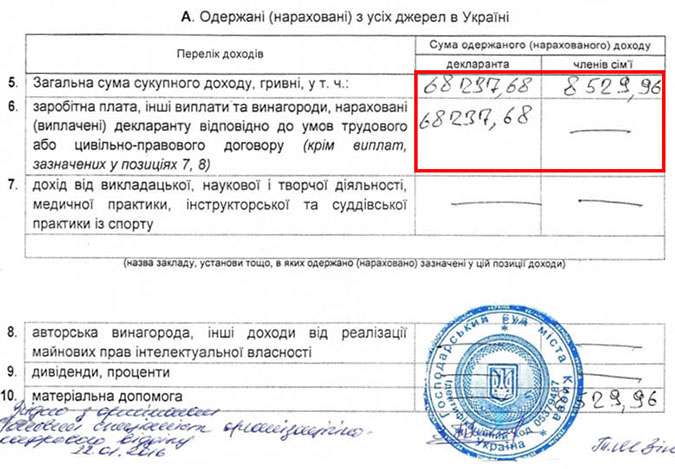 А. Одержані (нараховані) з усіх джерел в Україні
Перелік доходів
Сума одержаного (нарахованого) доходу
декларанта
членів сім'ї
5. Загальна сума сукупного доходу, гривні, у т. ч.: 68 237,68 8 529,96
6. заробітна плата, інші виплати та винагороди, нараховані 68 237,68 —
(виплачені) декларанту відповідно до умов трудового
або цивільно-правового договору (крім виплат,
зазначених у позиціях 7, 8)
7. дохід від викладацької, наукової і творчої діяльності, — —
медичної практики, інструкторської та суддівської
практики із спорту
(назва закладу, установи тощо, в яких одержано (нараховано) зазначені у цій позиції доходи)
8. авторська винагорода, інші доходи від реалізації
майнових прав інтелектуальної власності
9. дивіденди, проценти
10. матеріальна допомога 529,96
Згідно з оригіналом
22.01.2016
Господарський суд міста Києва
код 05379487
Україна